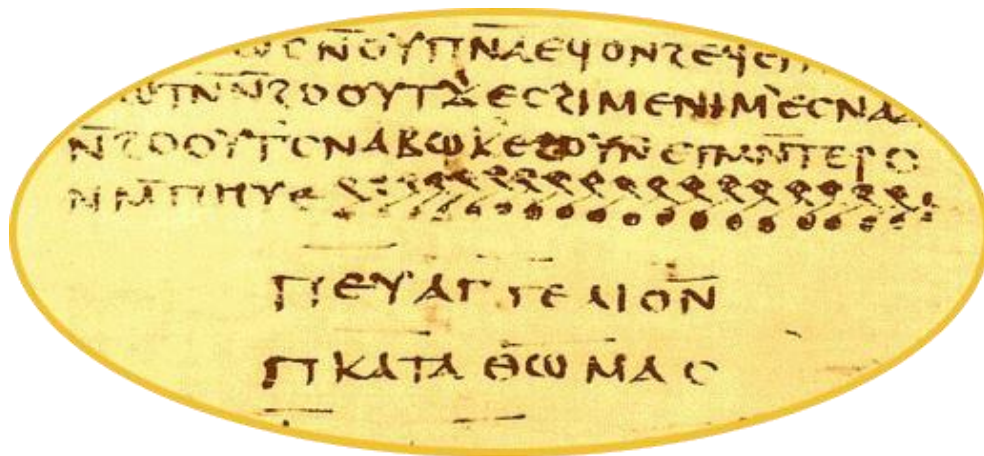 ⲱⲥ ⲛ̄ⲟⲩⲡⲛ̄ⲁ ⲉϥⲟⲛϩ ⲉϥⲉⲓ
ⲱⲧⲛ̄ ⲛ̄ϩⲟⲟⲩⲧ ϫⲉ ⲥϩⲓⲙⲉ ⲛⲓⲙ ⲉⲥⲛⲁⲁ
ⲛ̄ϩⲟⲟⲩⲧ ⲥⲛⲁⲃⲱⲕ ⲉϩⲟⲩⲛ ⲉⲧⲙⲛ̄ⲧⲉⲣⲟ
ⲛⲙ̄ⲡⲏⲩⲉ
ⲡⲉⲩⲁⲅⲅⲉⲗⲓⲟⲛ
ⲡⲕⲁⲧⲁ ⲑⲱⲙⲁⲥ